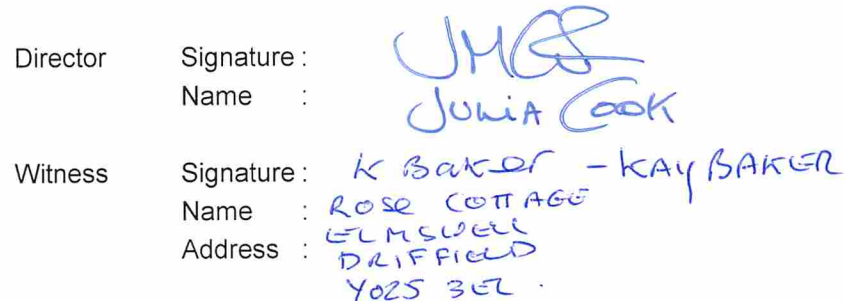 Director Signature : JMC
Name : JULIA COOK
Witness Signature : K Baker - KAY BAKER
Name : ROSE COTTAGE
ELMSWELL
Address : DRIFFIELD
YO25 3EL .